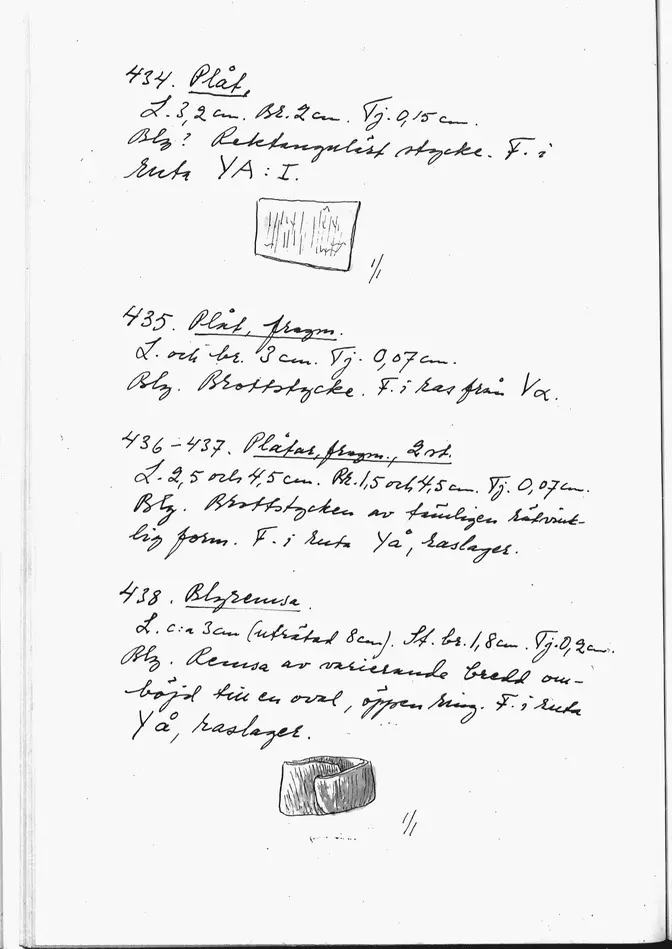 434. Plåt.
L. 3,2 cm. Br. 2 cm. Tj. 0,15 cm.
Bly? Rektangulärt stycke. F. i
ruta YA : I.
1/1
435. Plåt, fragm.
L. och br. 3 cm. Tj. 0,07 cm.
Bly. Brottstycke. F. i ras från Vα.
436-437. Plåtar, fragm., 2 st.
L. 2,5 och 4,5 cm. Br. 1,5 och 4,5 cm. Tj. 0,07 cm.
Bly. Brottstycken av tämligen rätvink-
lig form. F. i ruta YÅ, raslager.
438. Blyremsa.
L. c:a 3 cm (uträtad 8 cm). St. br. 1,8 cm. Tj. 0,2 cm.
Bly. Remsa av varierande bredd om-
böjd till en oval, öppen ring. F. i ruta
YÅ, raslager.
1/1